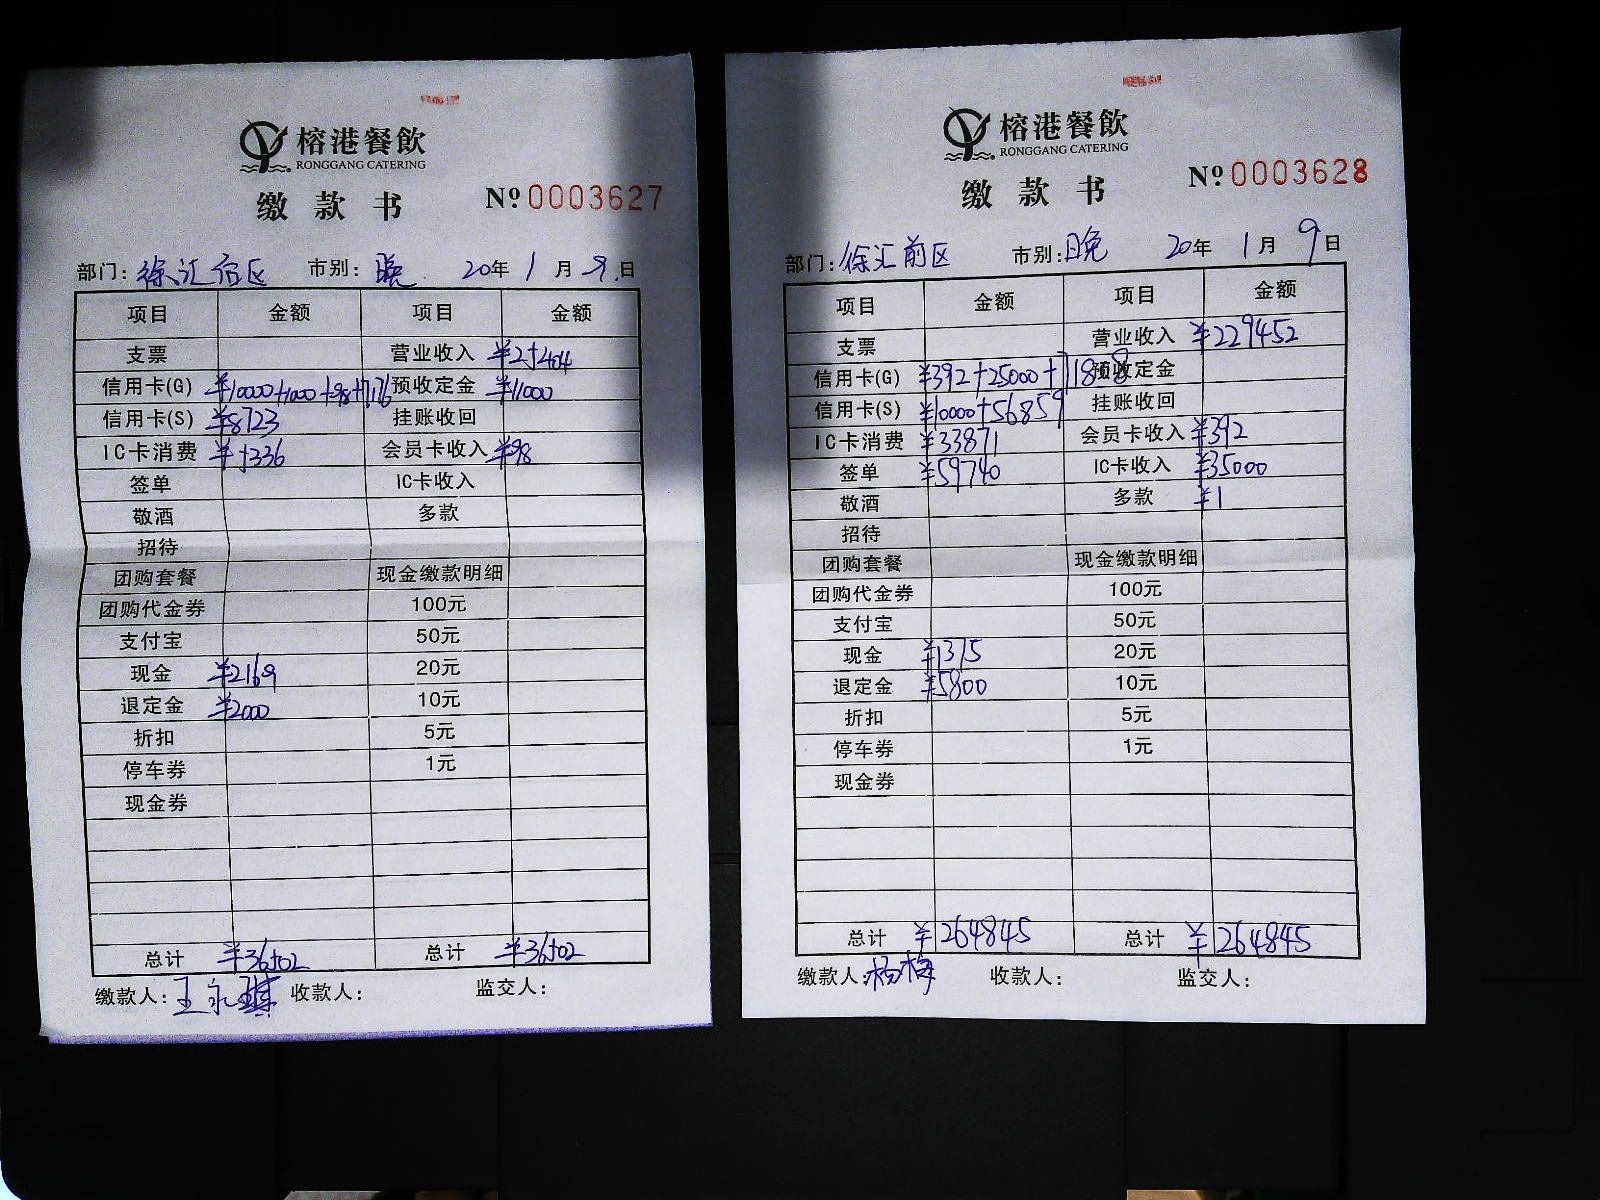 榕港餐飲
RONGGANG CATERING
缴款书 № 0003627
部门: 徐汇后区 市别: 晚 20年 1月 9日
项目 金额 项目 金额
支票 营业收入 ¥25404
信用卡(G) ¥10000+1000+98+7176 预收定金 ¥11000
信用卡(S) ¥8723 挂账收回
IC卡消费 ¥5336 会员卡收入 ¥98
签单 IC卡收入
敬酒 多款
招待
团购套餐 现金缴款明细
团购代金券 100元
支付宝 50元
现金 ¥2169 20元
退定金 ¥2000 10元
折扣 5元
停车券 1元
现金券
总计 ¥36502 总计 ¥36502
缴款人: 王永 收款人: 监交人:
榕港餐飲
RONGGANG CATERING
缴款书 № 0003628
部门: 徐汇前区 市别: 晚 20年 1月 9日
项目 金额 项目 金额
支票 营业收入 ¥229452
信用卡(G) ¥392+25000+71808 预收定金
信用卡(S) ¥10000+56859 挂账收回
IC卡消费 ¥33871 会员卡收入 ¥392
签单 ¥59740 IC卡收入 ¥35000
敬酒 多款 ¥1
招待
团购套餐 现金缴款明细
团购代金券 100元
支付宝 50元
现金 ¥1375 20元
退定金 ¥5800 10元
折扣 5元
停车券 1元
现金券
总计 ¥264845 总计 ¥264845
缴款人: 杨梅 收款人: 监交人: